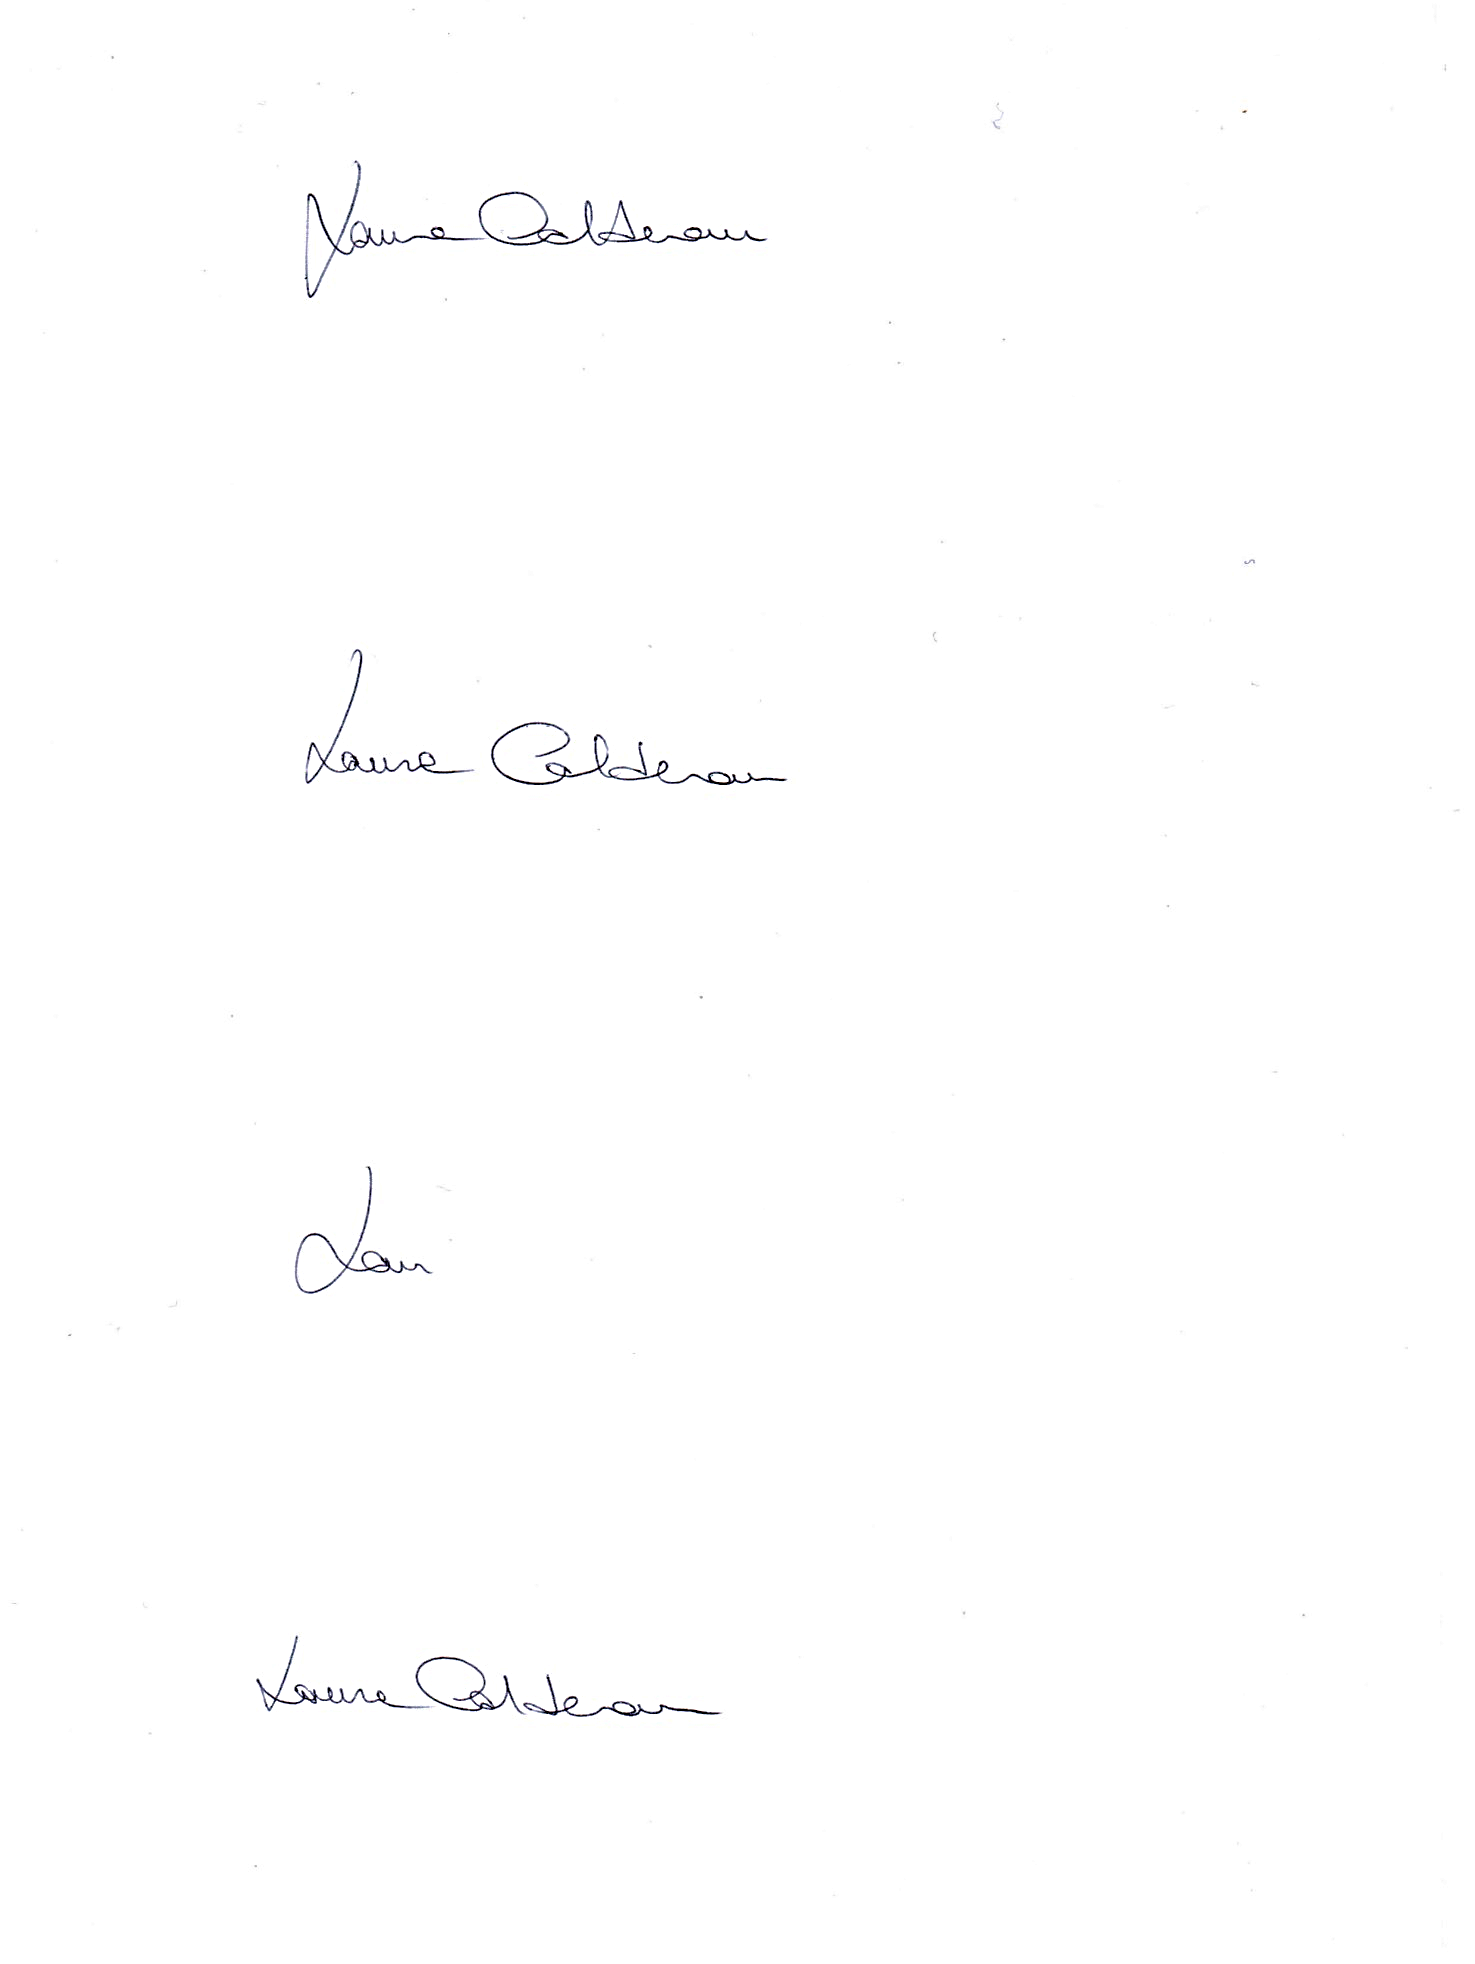 Laura Calderan
Laura Calderan
Lau
Laura Calderan